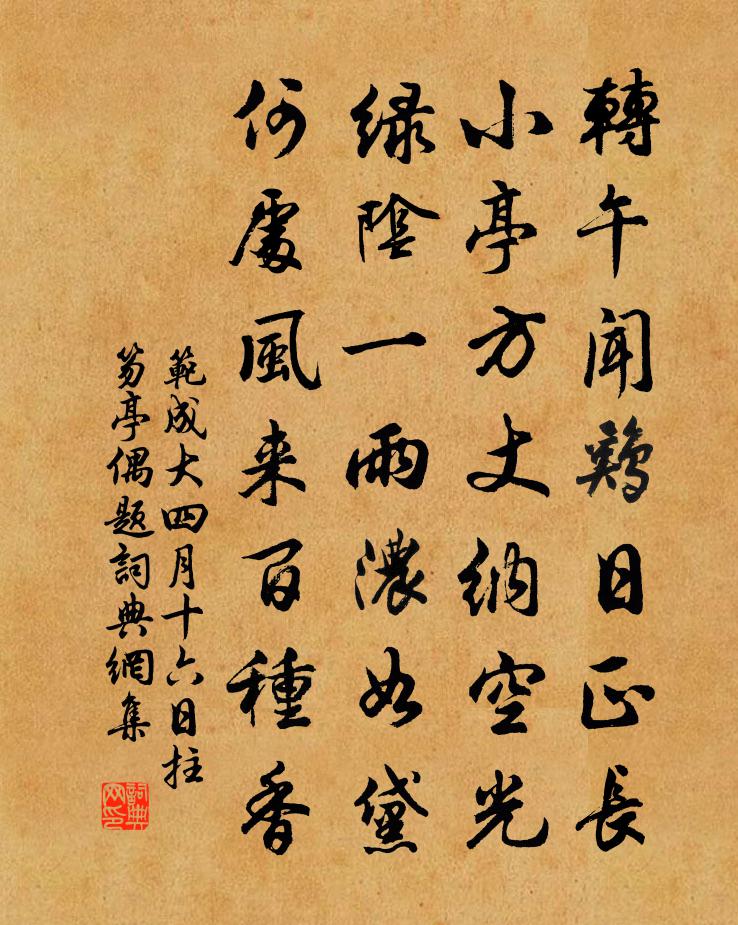 轉午聞鷄日正長
小亭方丈納空光
緑陰一雨濃如黛
何處風来百種香
範成大四月十六日拄
笏亭偶題詞典網集
詞典网印